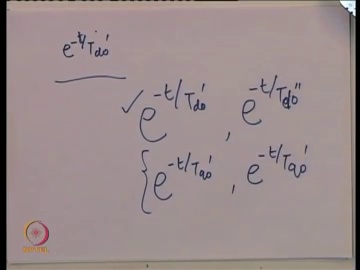 e^{-t/T_{do}'}
✓ e^{-t/T_{do}'} , e^{-t/T_{do}''}
{ e^{-t/T_{qo}'} , e^{-t/T_{qo}'}